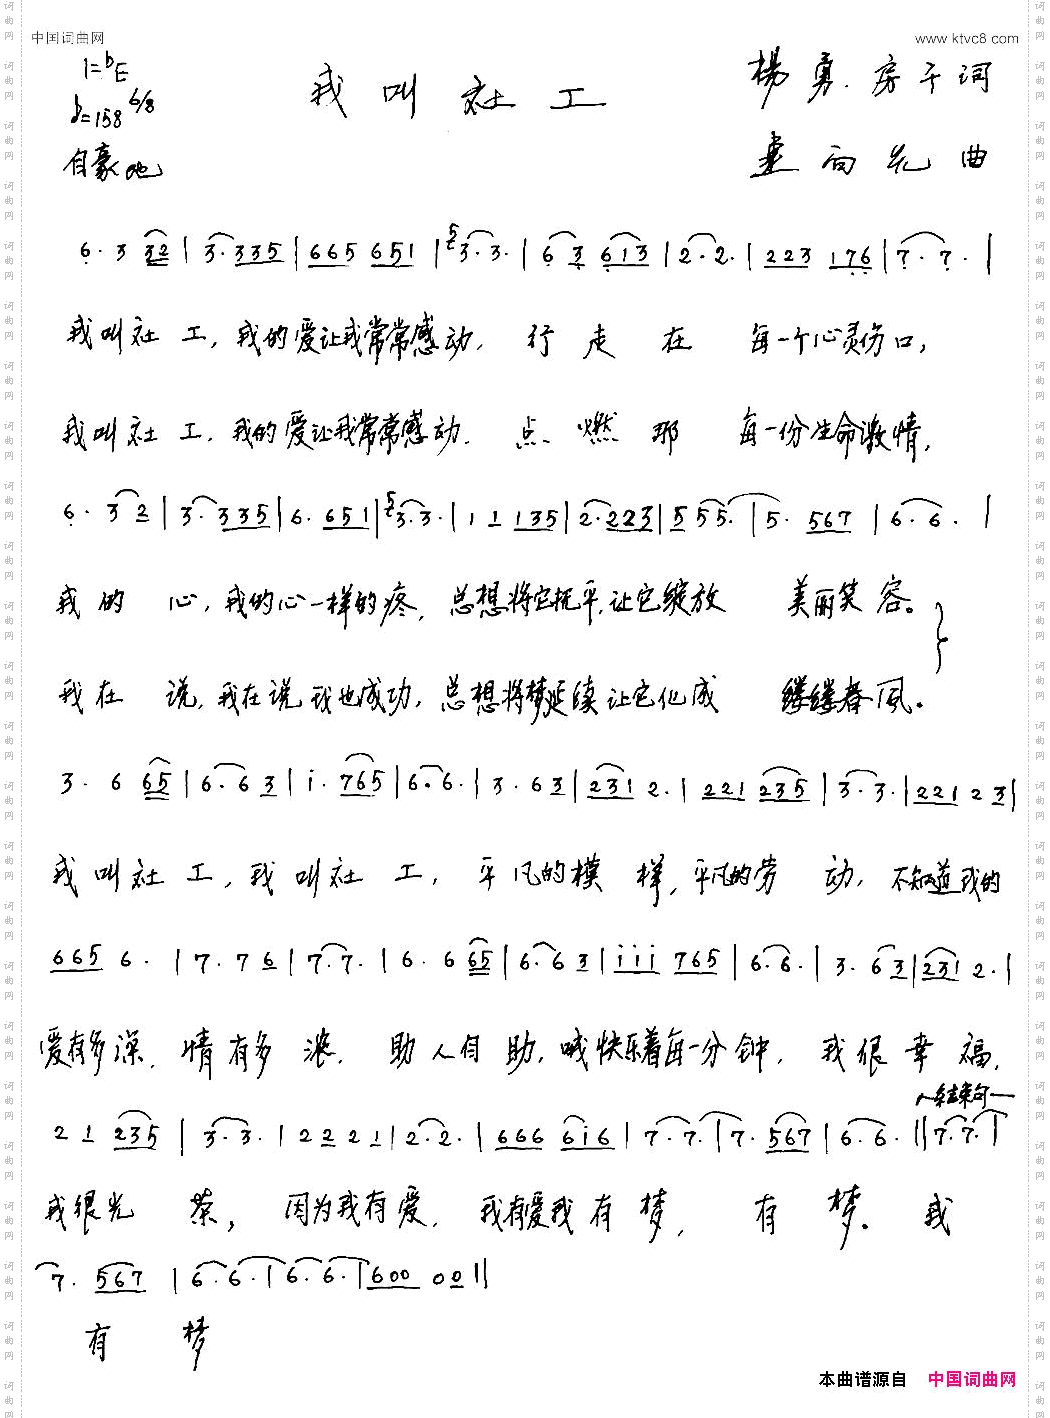 中国词曲网
www.ktvc8.com
1=ᵇE
♪=158 6/8
自豪地
我叫社工
楊勇.房千词
向先曲
6· 3 32 | 3· 335 | 665 651 | 3· 3· | 6 3 613 | 2· 2· | 223 176 | 7· 7· |
我叫社工,我的爱让我常常感动,行走在每一个心灵伤口,
我叫社工,我的爱让我常常感动.点燃那每一份生命激情,
6· 3 2 | 3· 335 | 6· 651 | 3· 3· | 1 1 135 | 2· 223 | 5 55· | 5· 567 | 6· 6· |
我的心,我的心一样的疼,总想将它抚平,让它绽放美丽笑容。
我在说,我在说我也成功,总想将梦延续让它化成缕缕春风。
3· 6 65 | 6· 63 | i· 765 | 6· 6· | 3· 63 | 231 2· | 221 235 | 3· 3· | 221 23 |
我叫社工,我叫社工,平凡的模样,平凡的劳动,不知道我的
665 6· | 7· 76 | 7· 7· | 6· 6 65 | 6· 63 | iii 765 | 6· 6· | 3· 63 | 231 2· |
爱有多深,情有多浓.助人自助,喊快乐着每一分钟,我很幸福,
结束句
2 1 235 | 3· 3· | 22 21 | 2· 2· | 666 6i6 | 7· 7· | 7· 567 | 6· 6· || 7· 7· |
我很光荣,因为我有爱,我有爱我有梦,有梦。我
7· 567 | 6· 6· | 6· 6· | 600 00 ||
有梦
本曲谱源自 中国词曲网